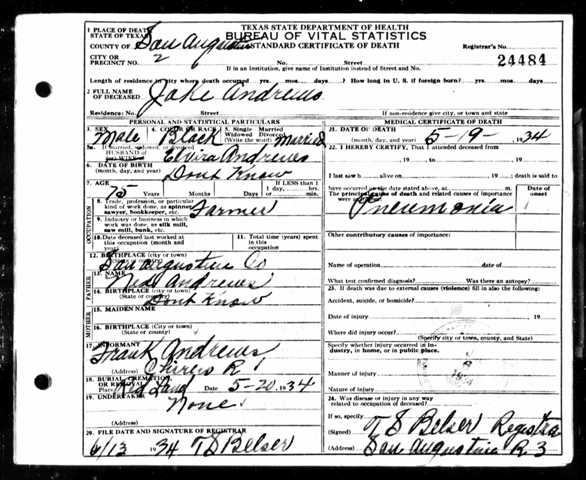 TEXAS STATE DEPARTMENT OF HEALTH
BUREAU OF VITAL STATISTICS
STANDARD CERTIFICATE OF DEATH
1 PLACE OF DEATH
STATE OF TEXAS
COUNTY OF San Augustine
CITY OR PRECINCT NO. 2 No. Street
Registrar's No.
24484
If in an Institution, give name of Institution instead of Street and No.
Length of residence in city where death occurred yrs. mos. days. How long in U. S. if foreign born? yrs. mos. days
2 FULL NAME OF DECEASED Jake Andrews
Residence: No. Street If non-residence give city or town, and state
PERSONAL AND STATISTICAL PARTICULARS
3. SEX Male 4. COLOR OR RACE Black 5. Single Married Widowed Divorced Married
5a. If married, widowed, or divorced
HUSBAND OF (or) WIFE OF Elvira Andrews
6. DATE OF BIRTH (month, day, and year) Dont Know
7. AGE 75 Years Months Days If LESS than 1 day, hrs. min.
OCCUPATION
8. Trade, profession, or particular kind of work done, as spinner, sawyer, bookkeeper, etc. Farmer
9. Industry or business in which work was done, as silk mill, saw mill, bank, etc.
10. Date deceased last worked at this occupation (month and year)
11. Total time (years) spent in this occupation
12. BIRTHPLACE (city or town) (State or county) San Augustine Co
FATHER
13. NAME Ned Andrews
14. BIRTHPLACE (city or town) (State or county) Dont Know
MOTHER
15. MAIDEN NAME
16. BIRTHPLACE (City or town) (State or county)
17. INFORMANT Frank Andrews
(Address) Chireno R 1
18. BURIAL, CREMATION OR REMOVAL
Place Red Land Date 5-20 1934
19. UNDERTAKER None
20. FILE DATE AND SIGNATURE OF REGISTRAR
6/13 1934 T S Belser
MEDICAL CERTIFICATE OF DEATH
21. DATE OF DEATH (month, day, and year) 5-19- 1934
22. I HEREBY CERTIFY, That I attended deceased from
, 19 , to , 19
I last saw h alive on , 19 ; death is said to
have occurred on the date stated above, at m.
The principal cause of death and related causes of importance were as follows: Date of onset
Pneumonia
Other contributory causes of importance:
Name of operation date of
What test confirmed diagnosis? Was there an autopsy?
23. If death was due to external causes (violence) fill in also the following:
Accident, suicide, or homicide?
Date of injury 19
Where did injury occur?
(Specify city or town, county, and State)
Specify whether injury occurred in Industry, in home, or in public place.
Manner of injury
Nature of injury
24. Was disease or injury in any way related to occupation of deceased?
If so, specify
(Signed) T S Belser Registrar
(Address) San Augustine R 3